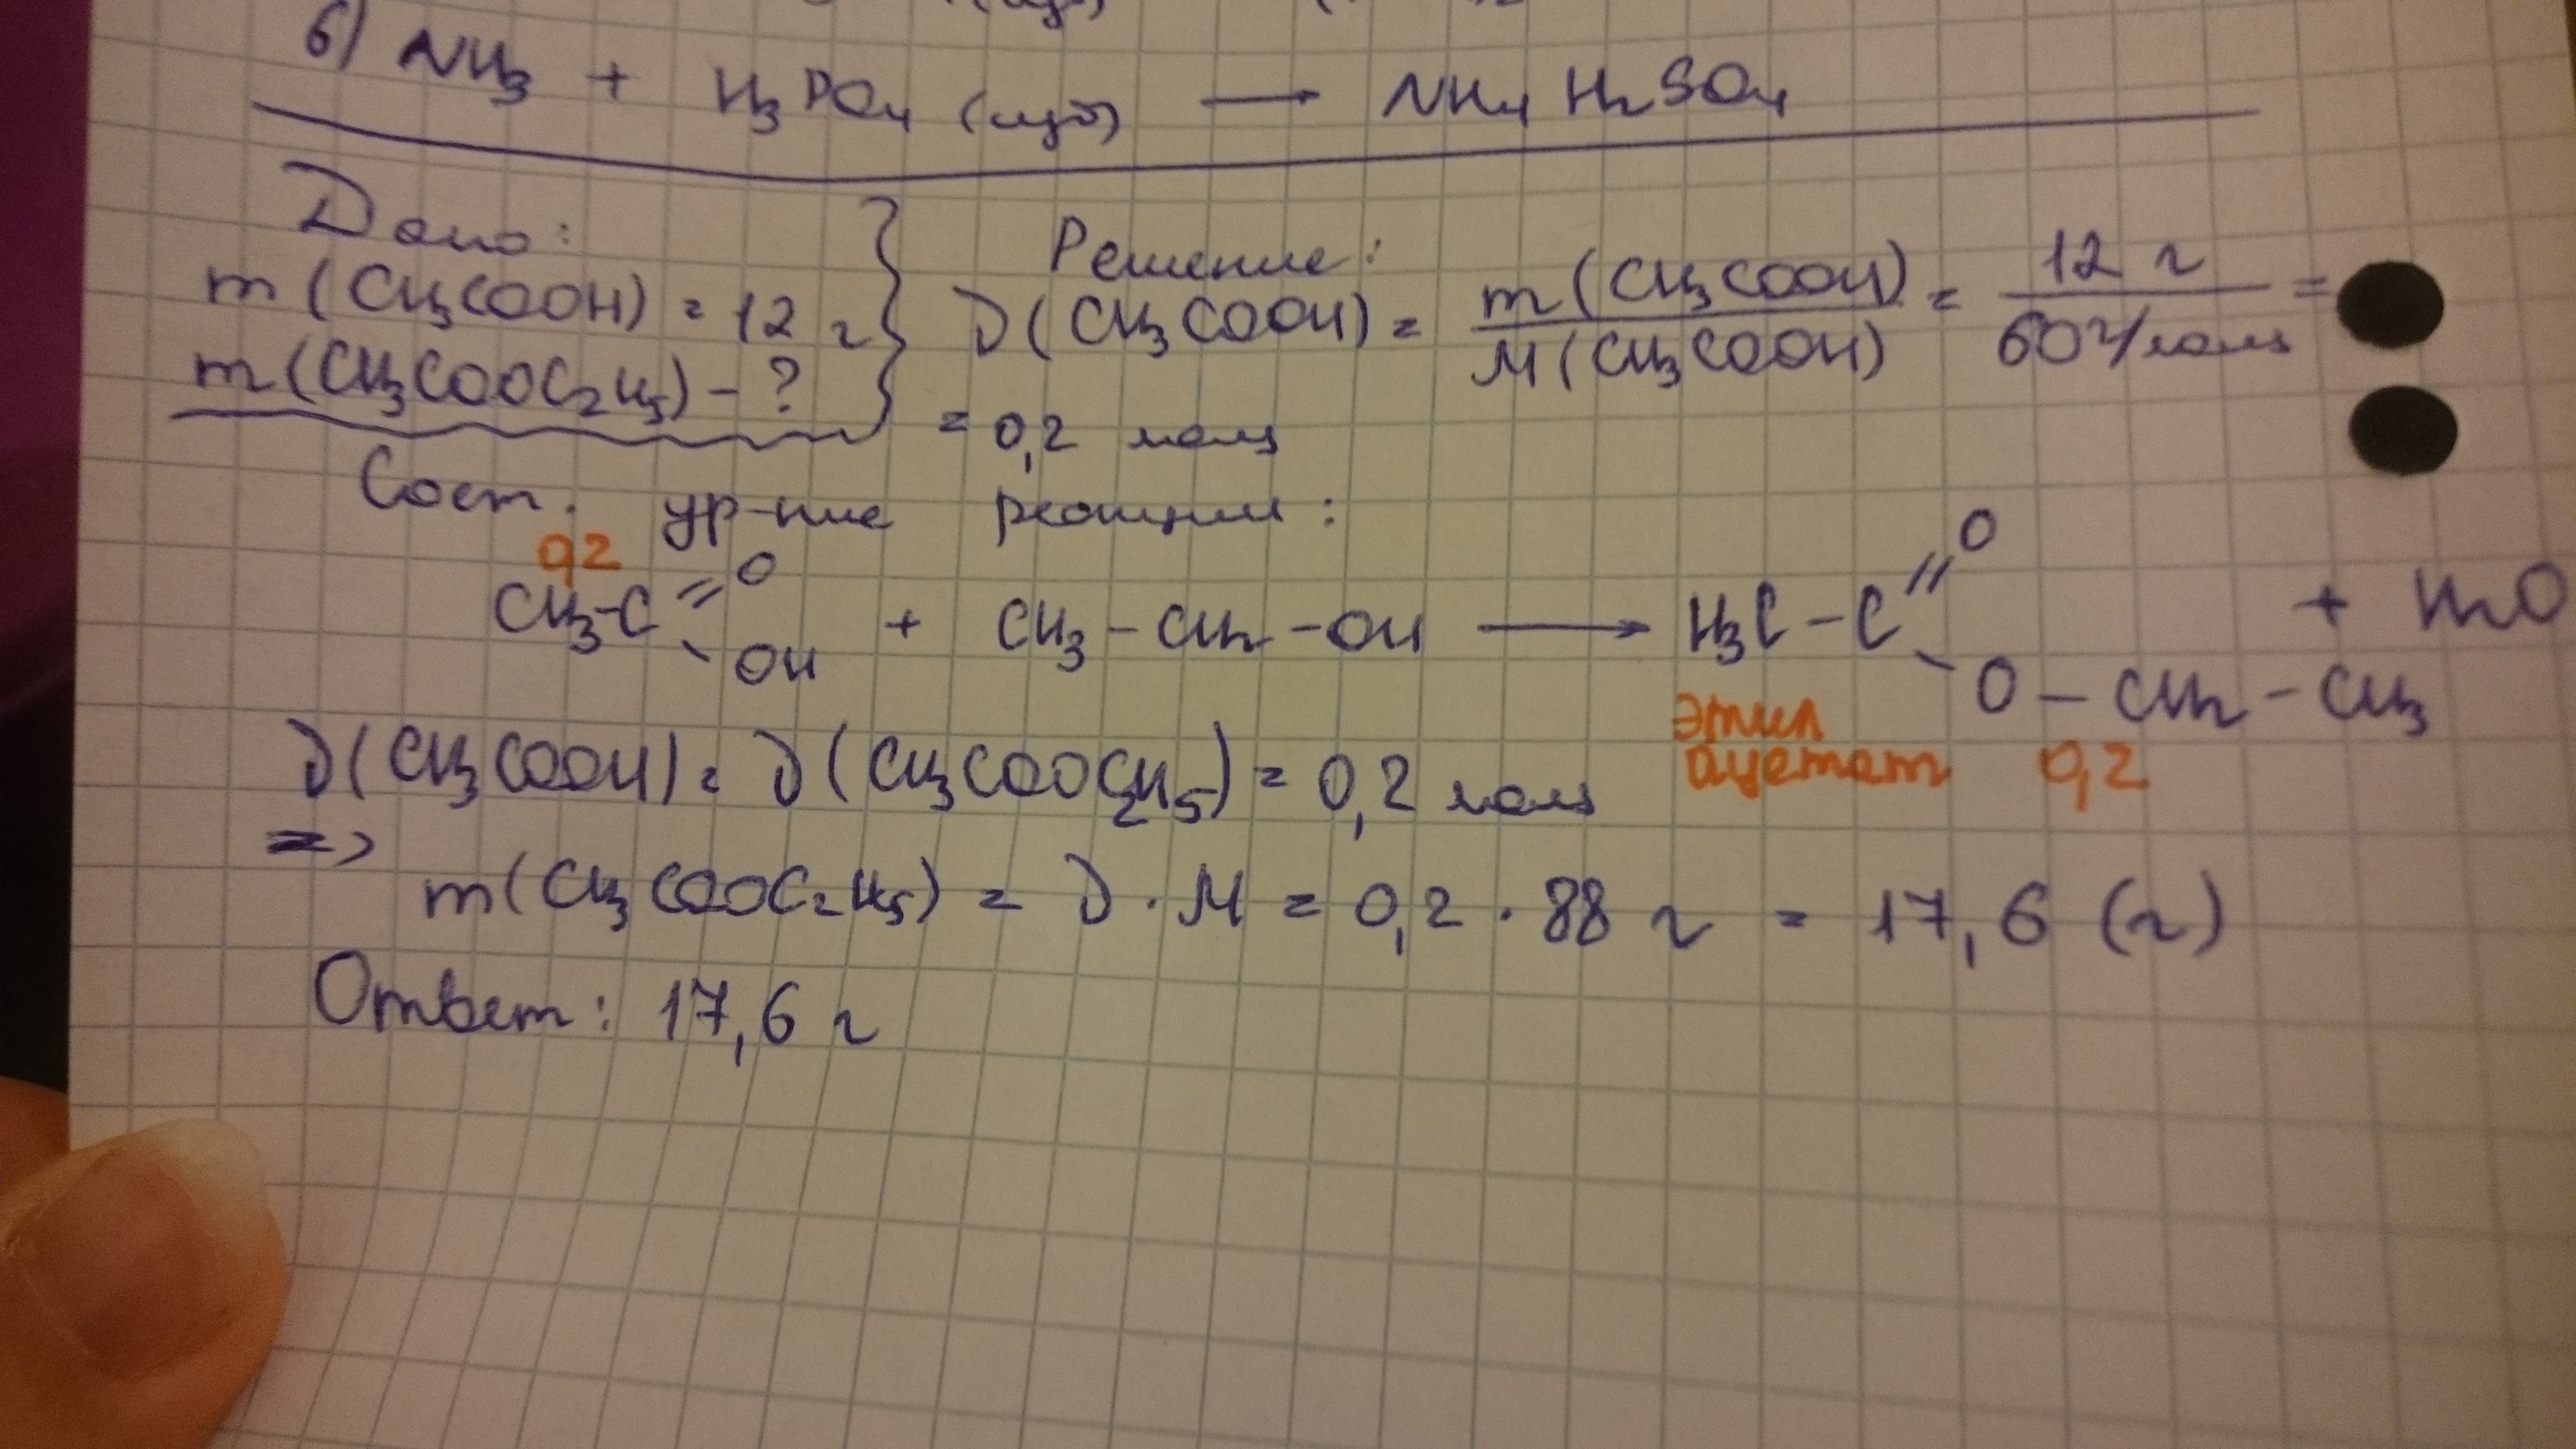 6) NH3 + H3PO4 (изб) → NH4 H2SO4
Дано:
m (CH3COOH) = 12 г
m (CH3COOC2H5) - ?
Решение:
ν(CH3COOH) = m (CH3COOH) / M (CH3COOH) = 12 г / 60 г/моль =
= 0,2 моль
Сост. ур-ние реакции:
0,2
CH3-C =O -OH + CH3 - CH2 - OH → H3C - C =O - O - CH2 - CH3 + H2O
этил
ацетат 0,2
ν(CH3COOH) = ν(CH3COOC2H5) = 0,2 моль
=>
m(CH3COOC2H5) = ν · M = 0,2 · 88 г = 17,6 (г)
Ответ: 17,6 г